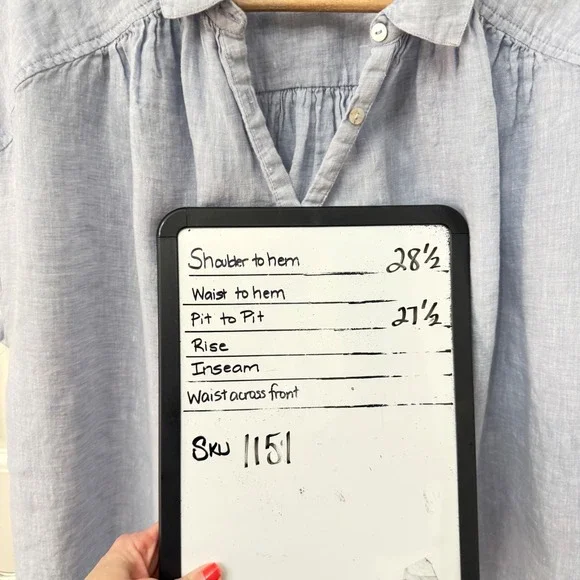 Shoulder to hem 28 1/2
Waist to hem
Pit to Pit 27 1/2
Rise
Inseam
Waist across front
SKU 1151